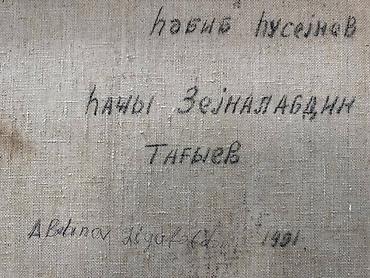 Һәбиб Һусејнов
Һаҹы Зејналабдин
Тағыев
1991